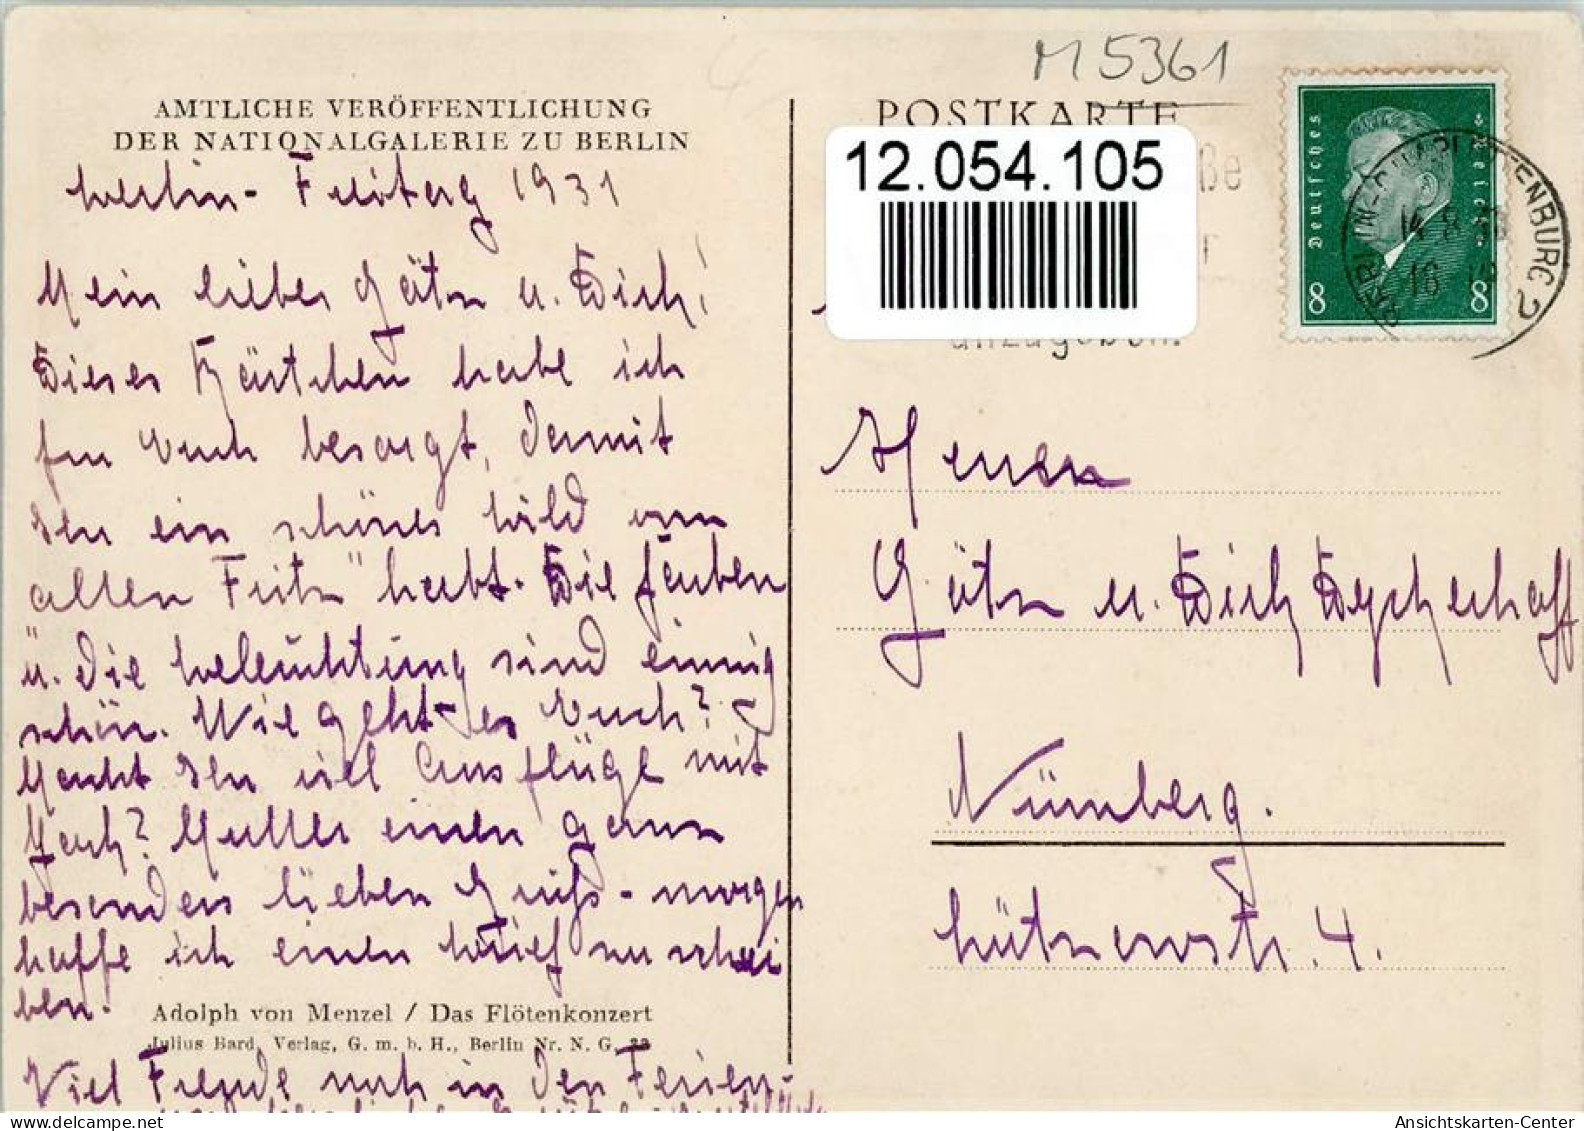 M 5361
AMTLICHE VERÖFFENTLICHUNG
DER NATIONALGALERIE ZU BERLIN
Berlin - Freitag 1931
Mein lieber Götz u. Dich!
Dieses Kärtchen habe ich
für Euch besorgt, damit
Ihr ein schönes Bild vom
"alten Fritz" habt. Die Farben
u. die Beleuchtung sind einzig
schön. Wie geht es Euch?
Macht Ihr viel Ausflüge mit
? Mutter einen ganz
besonders lieben Gruß - morgen
hoffe ich einen Brief zu schrei
ben.
Adolph von Menzel / Das Flötenkonzert
Julius Bard, Verlag, G. m. b. H., Berlin Nr. N. G. 33
Viel Freude noch in den Ferien
POSTKARTE
12.054.105
ße
anzugeben.
Deutsches Reich
8 8
CHARLOTTENBURG 2
14 8
18
Herren
Götz u. Dich
Nürnberg.
Lützowstr. 4.
Ansichtskarten-Center